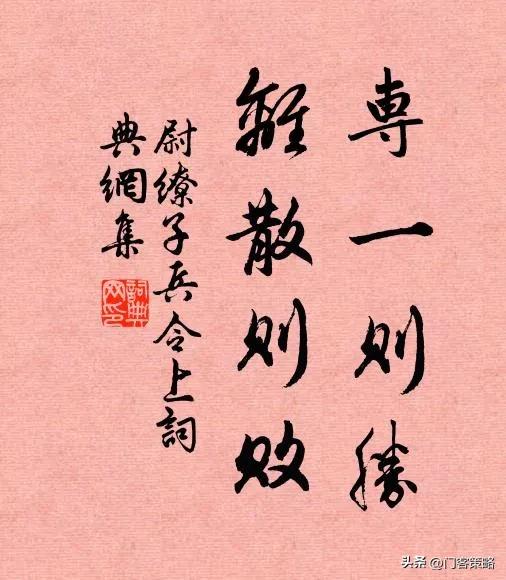 專一則勝
離散則敗
尉繚子兵令上詞
典網集
詞典網印
头条 @门客策略